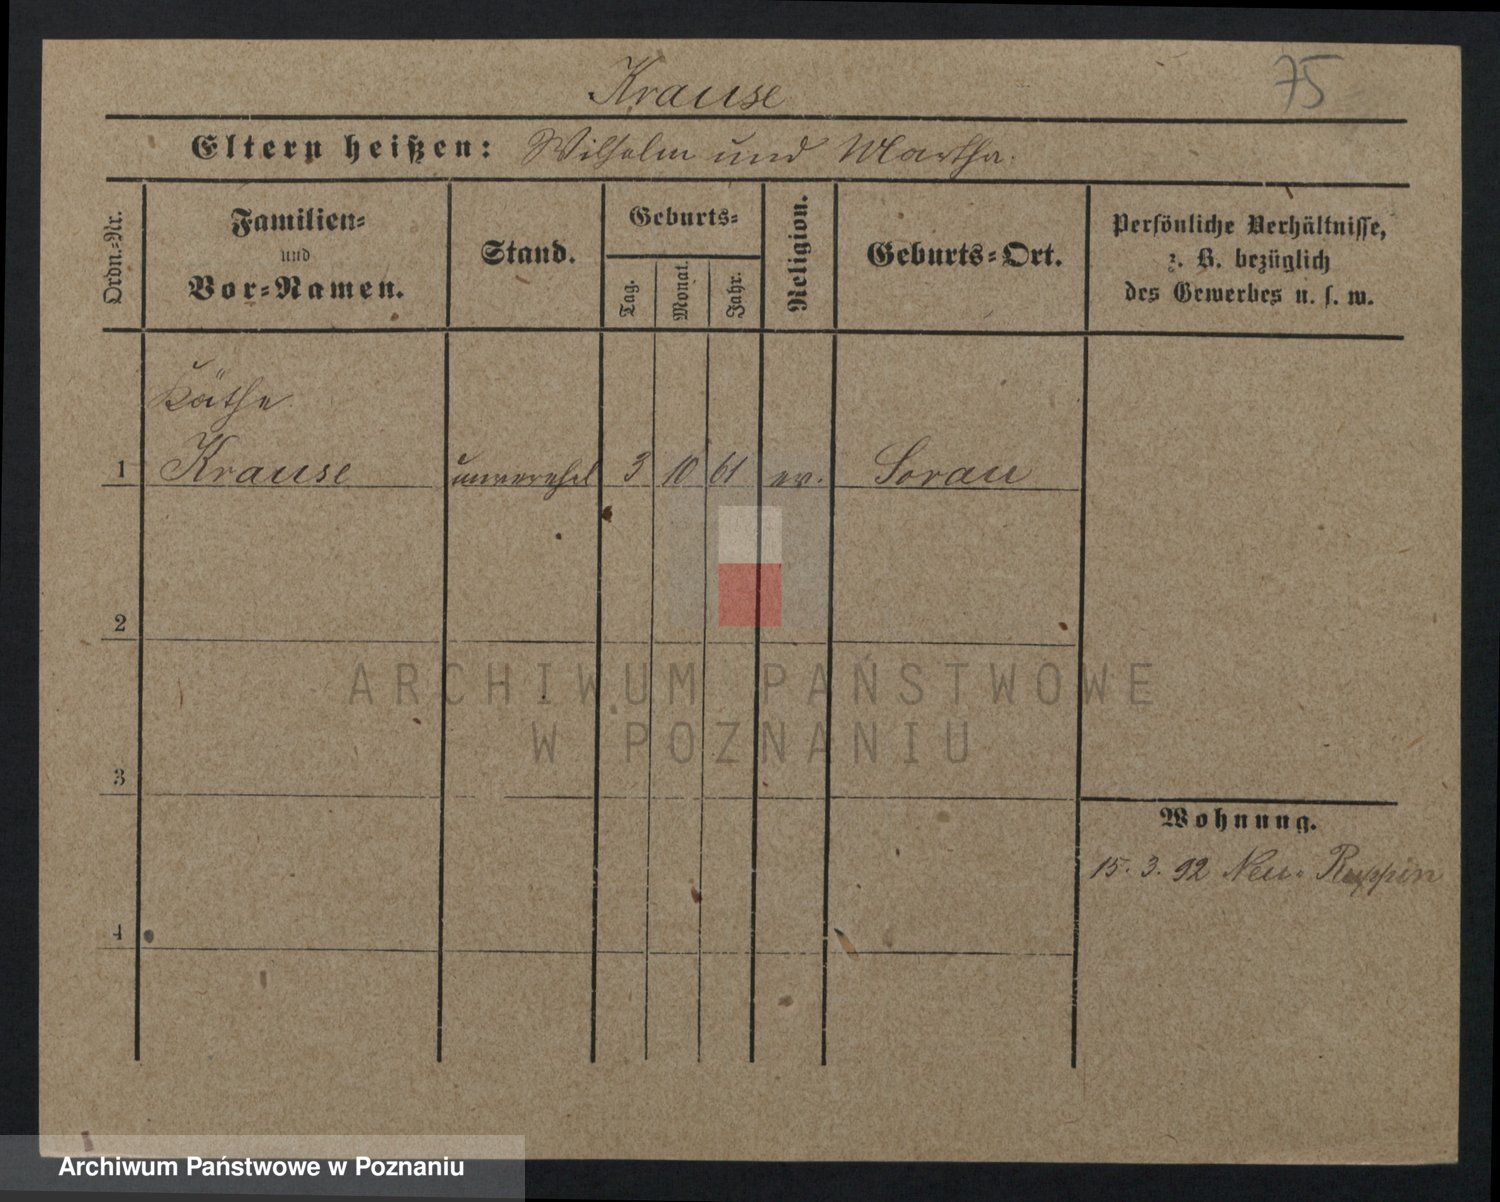 Krause
75
Eltern heißen: Wilhelm und Martha.
Ordn.=Nr.
Familien=
und
Vor=Namen.
Stand.
Geburts=
Tag.
Monat.
Jahr.
Religion.
Geburts=Ort.
Persönliche Verhältnisse,
z. B. bezüglich
des Gewerbes u. s. w.
Käthe
1 Krause unverehel 3 10 61 ev. Sorau
2
3
4
Wohnung.
15. 3. 92 Neu-Ruppin
ARCHIWUM PAŃSTWOWE
W POZNANIU
Archiwum Państwowe w Poznaniu